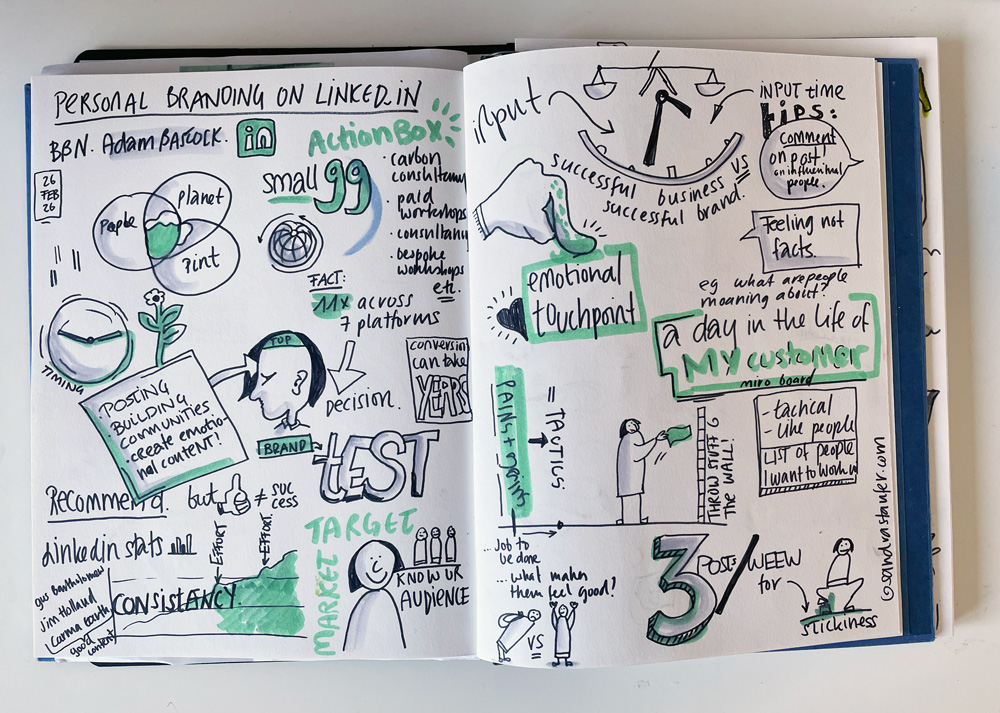 PERSONAL BRANDING ON LINKEDIN
BBN. Adam Bastock.
in
26
FEB
26
ActionBox
small 99
• carbon
consultancy
• paid
workshops
• consultancy
• bespoke
workshops
etc.
People
planet
Pint
FACT:
11x across
7 platforms
TIMING
• POSTING
BUILDING
communities
• create emotio-
nal content!
TOP
BRAND
Decision.
conversion
can take
YEARS
tEST
Recommend.
but
≠ suc
cess
Linkedin stats
EFFORT
EFFORT
gus Bartholomew
Jim Holland
good
content
CONSISTANCY
TARGET
MARKET
KNOW UR
AUDIENCE
input
INPUT time
successful business vs
successful brand.
tips:
comment
on post/
on influential
people.
Feeling not
facts.
emotional
touchpoint
eg what are people
moaning about?
a day in the life of
MY customer
miro board
PAINS + gains
= TACTICS
THROW STUFF @
THE WALL!
- tactical
- like people
LIST of people
I want to work w
... Job to
be done
... what makes
them feel good?
VS
3 POSTS/WEEK
for
stickiness
©sandrastaufer.com